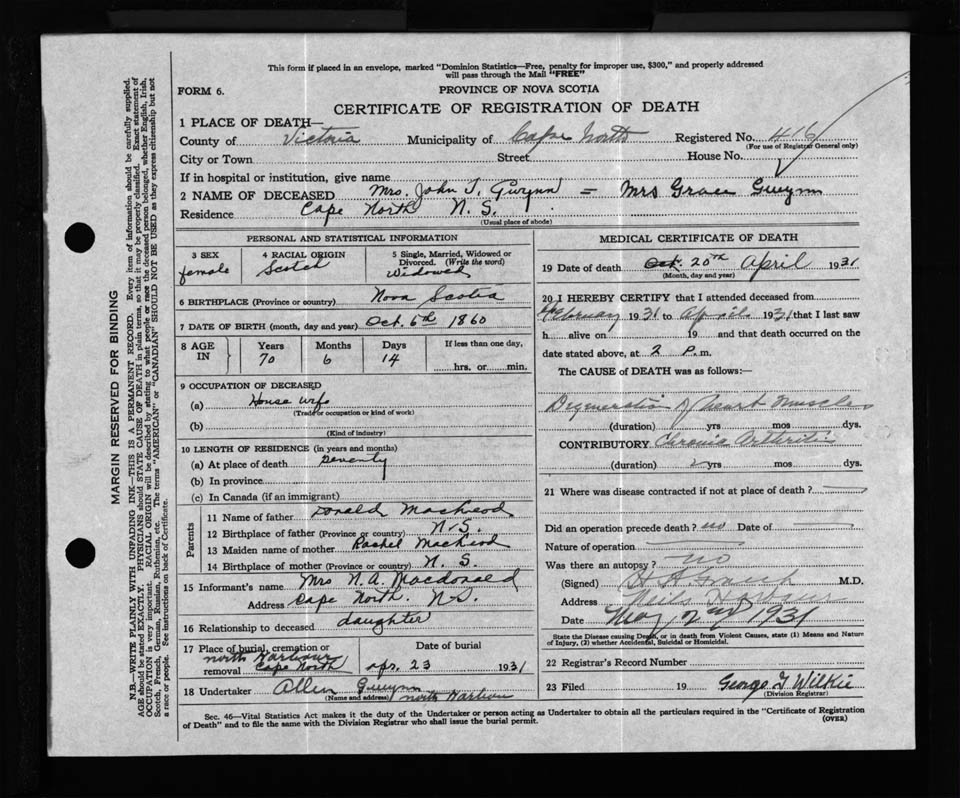 This form if placed in an envelope, marked "Dominion Statistics—Free, penalty for improper use, $300," and properly addressed
will pass through the Mail "FREE"
FORM 6.
PROVINCE OF NOVA SCOTIA
CERTIFICATE OF REGISTRATION OF DEATH
1 PLACE OF DEATH—
County of Victoria Municipality of Cape North Registered No. 416
(For use of Registrar General only)
City or Town Street House No.
If in hospital or institution, give name
2 NAME OF DECEASED Mrs. John T. Gwynn = Mrs Grace Gwynn
Residence Cape North N. S.
(Usual place of abode)
PERSONAL AND STATISTICAL INFORMATION
3 SEX
female
4 RACIAL ORIGIN
Scotch
5 Single, Married, Widowed or
Divorced. (Write the word)
widowed
6 BIRTHPLACE (Province or country) Nova Scotia
7 DATE OF BIRTH (month, day and year) Oct. 6th 1860
8 AGE
IN
Years Months Days If less than one day,
70 6 14
hrs. or min.
9 OCCUPATION OF DECEASED
(a) House wife
(Trade or occupation or kind of work)
(b)
(Kind of industry)
10 LENGTH OF RESIDENCE (in years and months)
(a) At place of death seventy
(b) In province
(c) In Canada (if an immigrant)
Parents
11 Name of father Donald MacLeod
12 Birthplace of father (Province or country) N. S.
13 Maiden name of mother Rachel MacLeod
14 Birthplace of mother (Province or country) N. S.
15 Informant's name Mrs N. A. Macdonald
Address Cape North. N.S.
16 Relationship to deceased daughter
17 Place of burial, cremation or
removal North Harbour
Cape North
Date of burial
apr. 23 1931
18 Undertaker Allen Gwynn
(Name and address) North Harbour
MEDICAL CERTIFICATE OF DEATH
19 Date of death Oct. 20th April 1931
(Month, day and year)
20 I HEREBY CERTIFY that I attended deceased from
February 1931 to April 1931 that I last saw
h alive on 19 and that death occurred on the
date stated above, at 2 P. m.
The CAUSE of DEATH was as follows:—
Degeneration of heart muscles
(duration) yrs mos dys.
CONTRIBUTORY Chronic Arthritis
(duration) 2 yrs mos dys.
21 Where was disease contracted if not at place of death?
Did an operation precede death? no Date of
Nature of operation
Was there an autopsy? no
(Signed) M.D.
Address Neils Harbour
Date May 1931
State the Disease causing Death, or in death from Violent Causes, state (1) Means and Nature
of Injury, (2) whether Accidental, Suicidal or Homicidal.
22 Registrar's Record Number
23 Filed 19 George T Wilkie
(Division Registrar)
Sec. 46—Vital Statistics Act makes it the duty of the Undertaker or person acting as Undertaker to obtain all the particulars required in the "Certificate of Registration
of Death" and to file the same with the Division Registrar who shall issue the burial permit. (OVER)
MARGIN RESERVED FOR BINDING
N.B.—WRITE PLAINLY WITH UNFADING INK—THIS IS A PERMANENT RECORD. Every item of information should be carefully supplied.
AGE should be stated EXACTLY. PHYSICIANS should STATE CAUSE OF DEATH in plain terms, so that it may be properly classified. Exact statement of
OCCUPATION is very important. RACIAL ORIGIN will be described by stating to what people or race the deceased person belonged, whether English, Irish,
Scotch, French, German, Russian, Ruthenian, etc. The terms "AMERICAN" or "CANADIAN" SHOULD NOT BE USED as they express citizenship but not
a race or people. See instructions on back of Certificate.